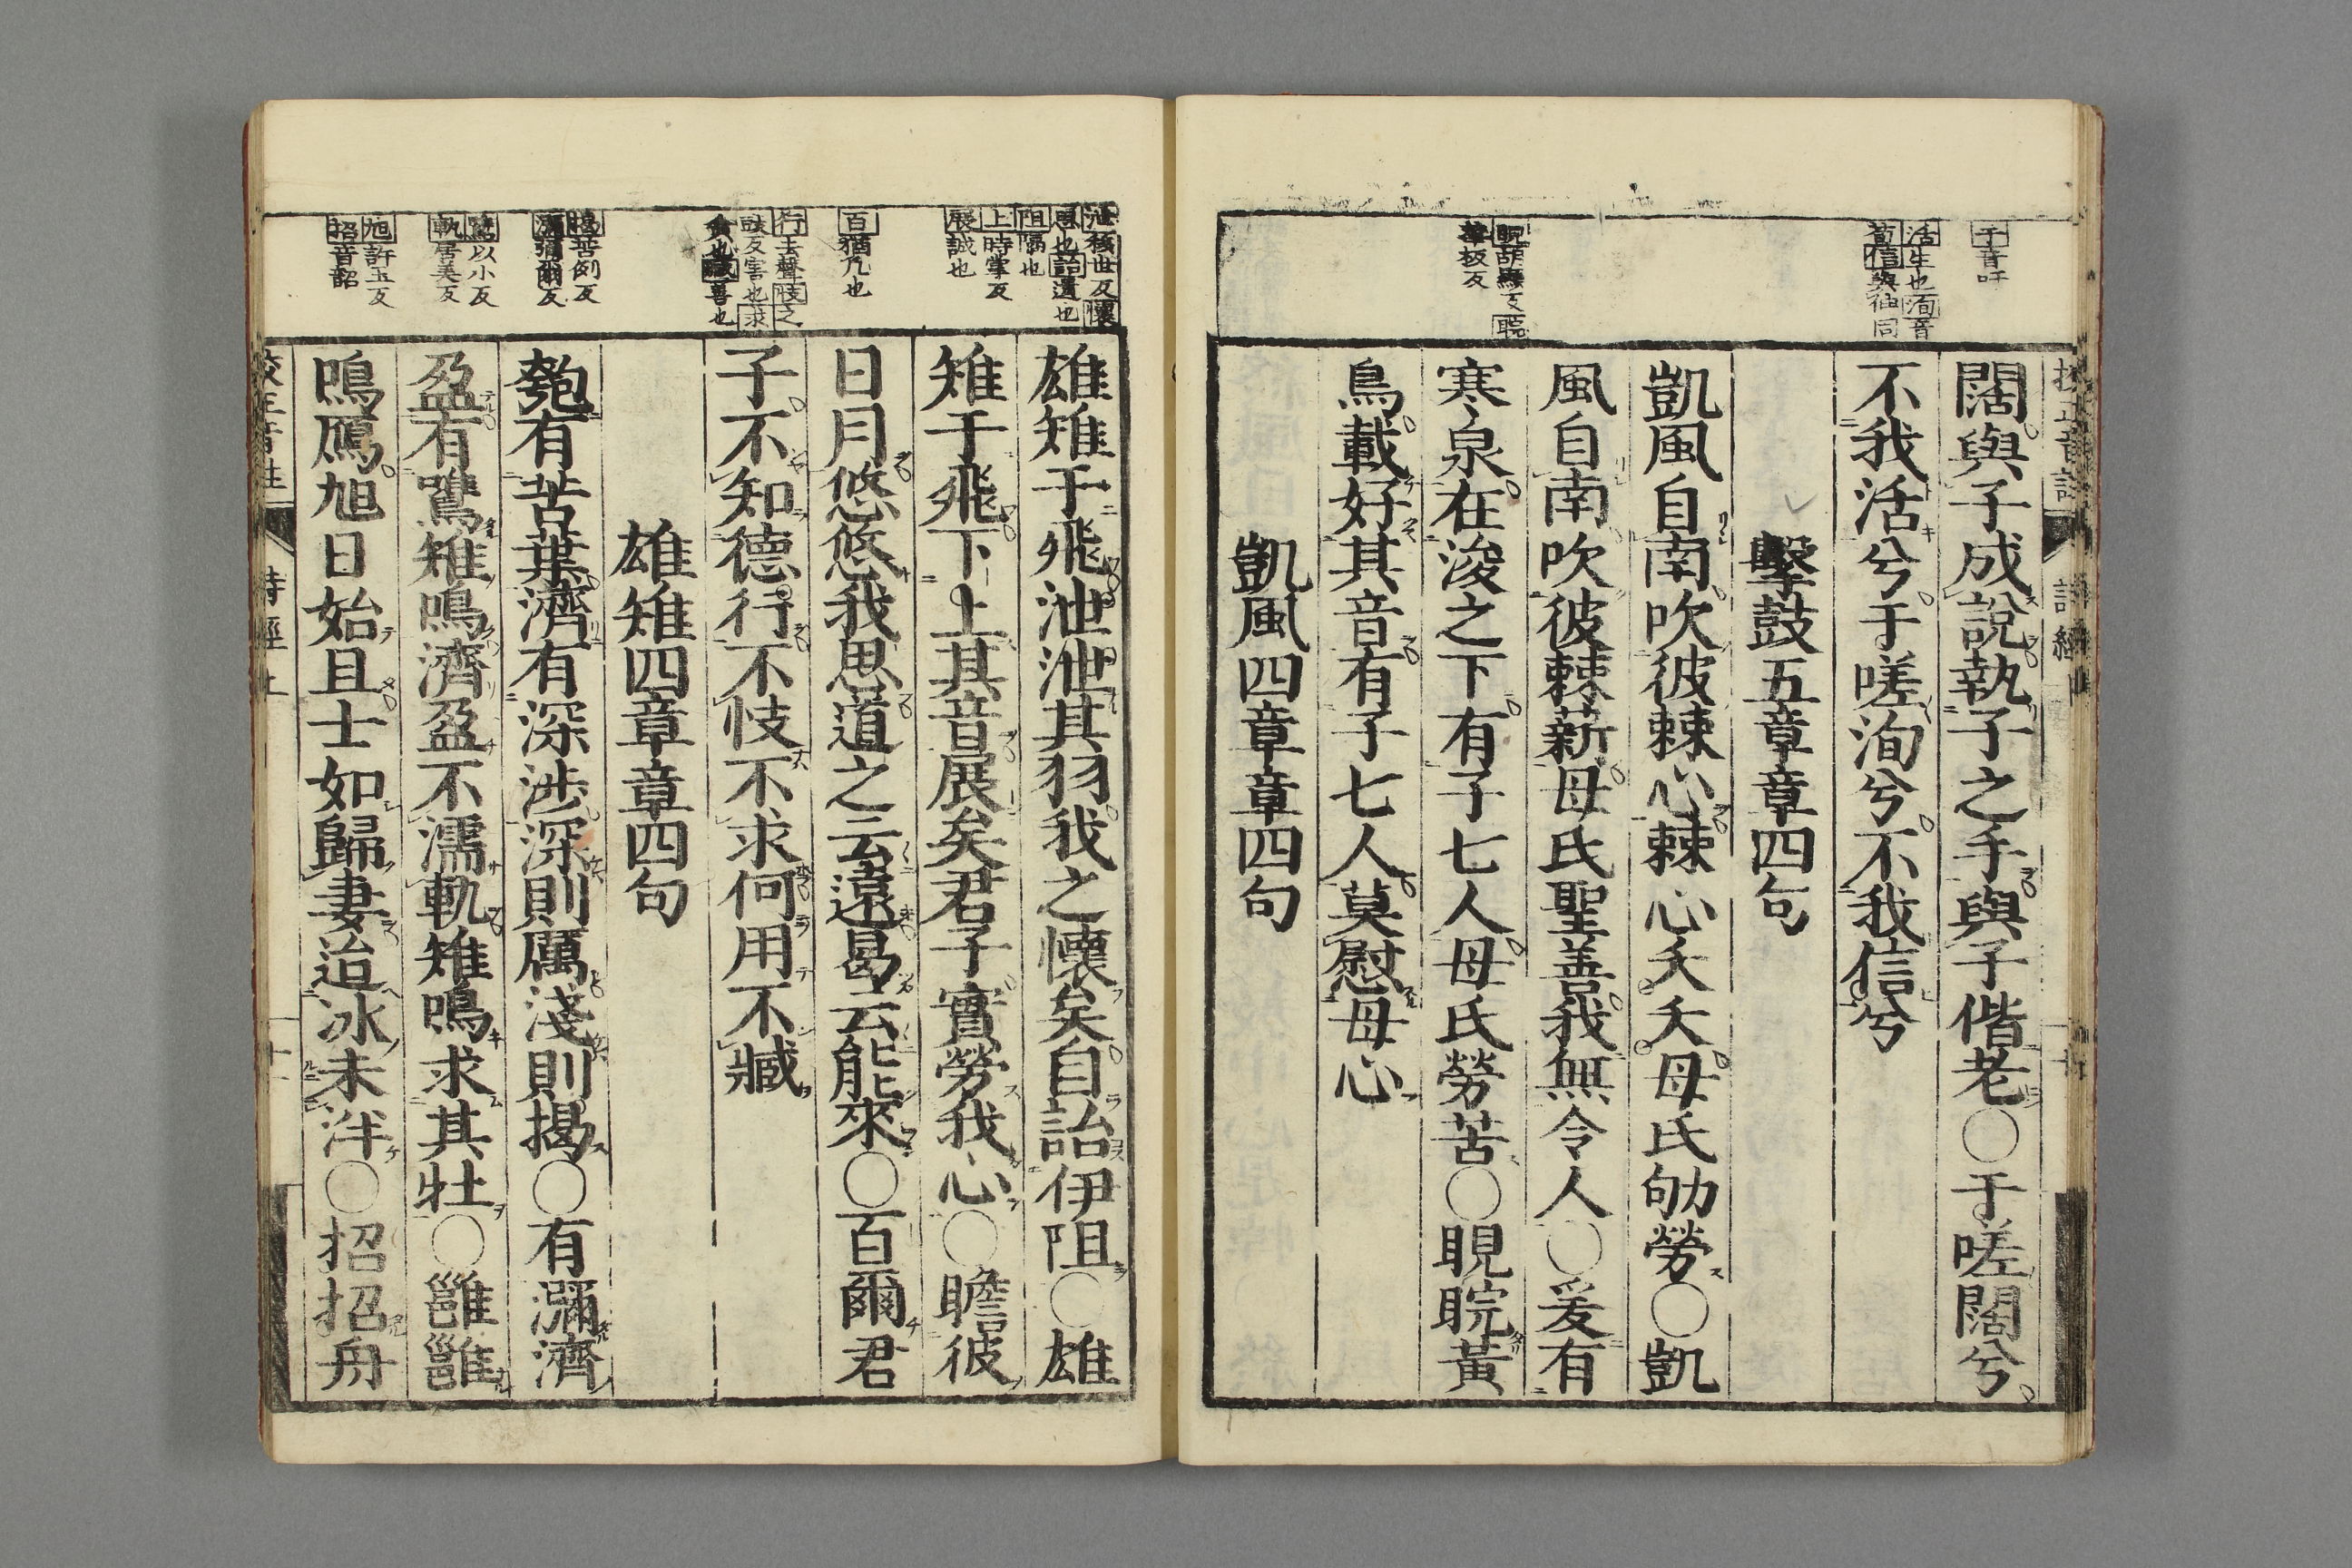 于音吁
活生也洵音
荀信與伸同
睍胡顯反睆
華板反
闊與子成說執子之手與子偕老○于嗟闊兮
不我活兮于嗟洵兮不我信兮
擊鼓五章章四句
凱風自南吹彼棘心棘心夭夭母氏劬勞○凱
風自南吹彼棘薪母氏聖善我無令人○爰有
寒泉在浚之下有子七人母氏勞苦○睍睆黃
鳥載好其音有子七人莫慰母心
凱風四章章四句
泄移世反懷
思也詒遺也
阻隔也
上時掌反
展誠也
百猶凡也
行去聲忮之
豉反害也求
貪也臧善也
揭苦例反
瀰彌爾反
鷕以小反
軌居美反
旭許玉反
招音韶
雄雉于飛泄泄其羽我之懷矣自詒伊阻○雄
雉于飛下上其音展矣君子實勞我心○瞻彼
日月悠悠我思道之云遠曷云能來○百爾君
子不知德行不忮不求何用不臧
雄雉四章章四句
匏有苦葉濟有深涉深則厲淺則揭○有瀰濟
盈有鷕雉鳴濟盈不濡軌雉鳴求其牡○雝雝
鳴鴈旭日始旦士如歸妻迨冰未泮○招招舟